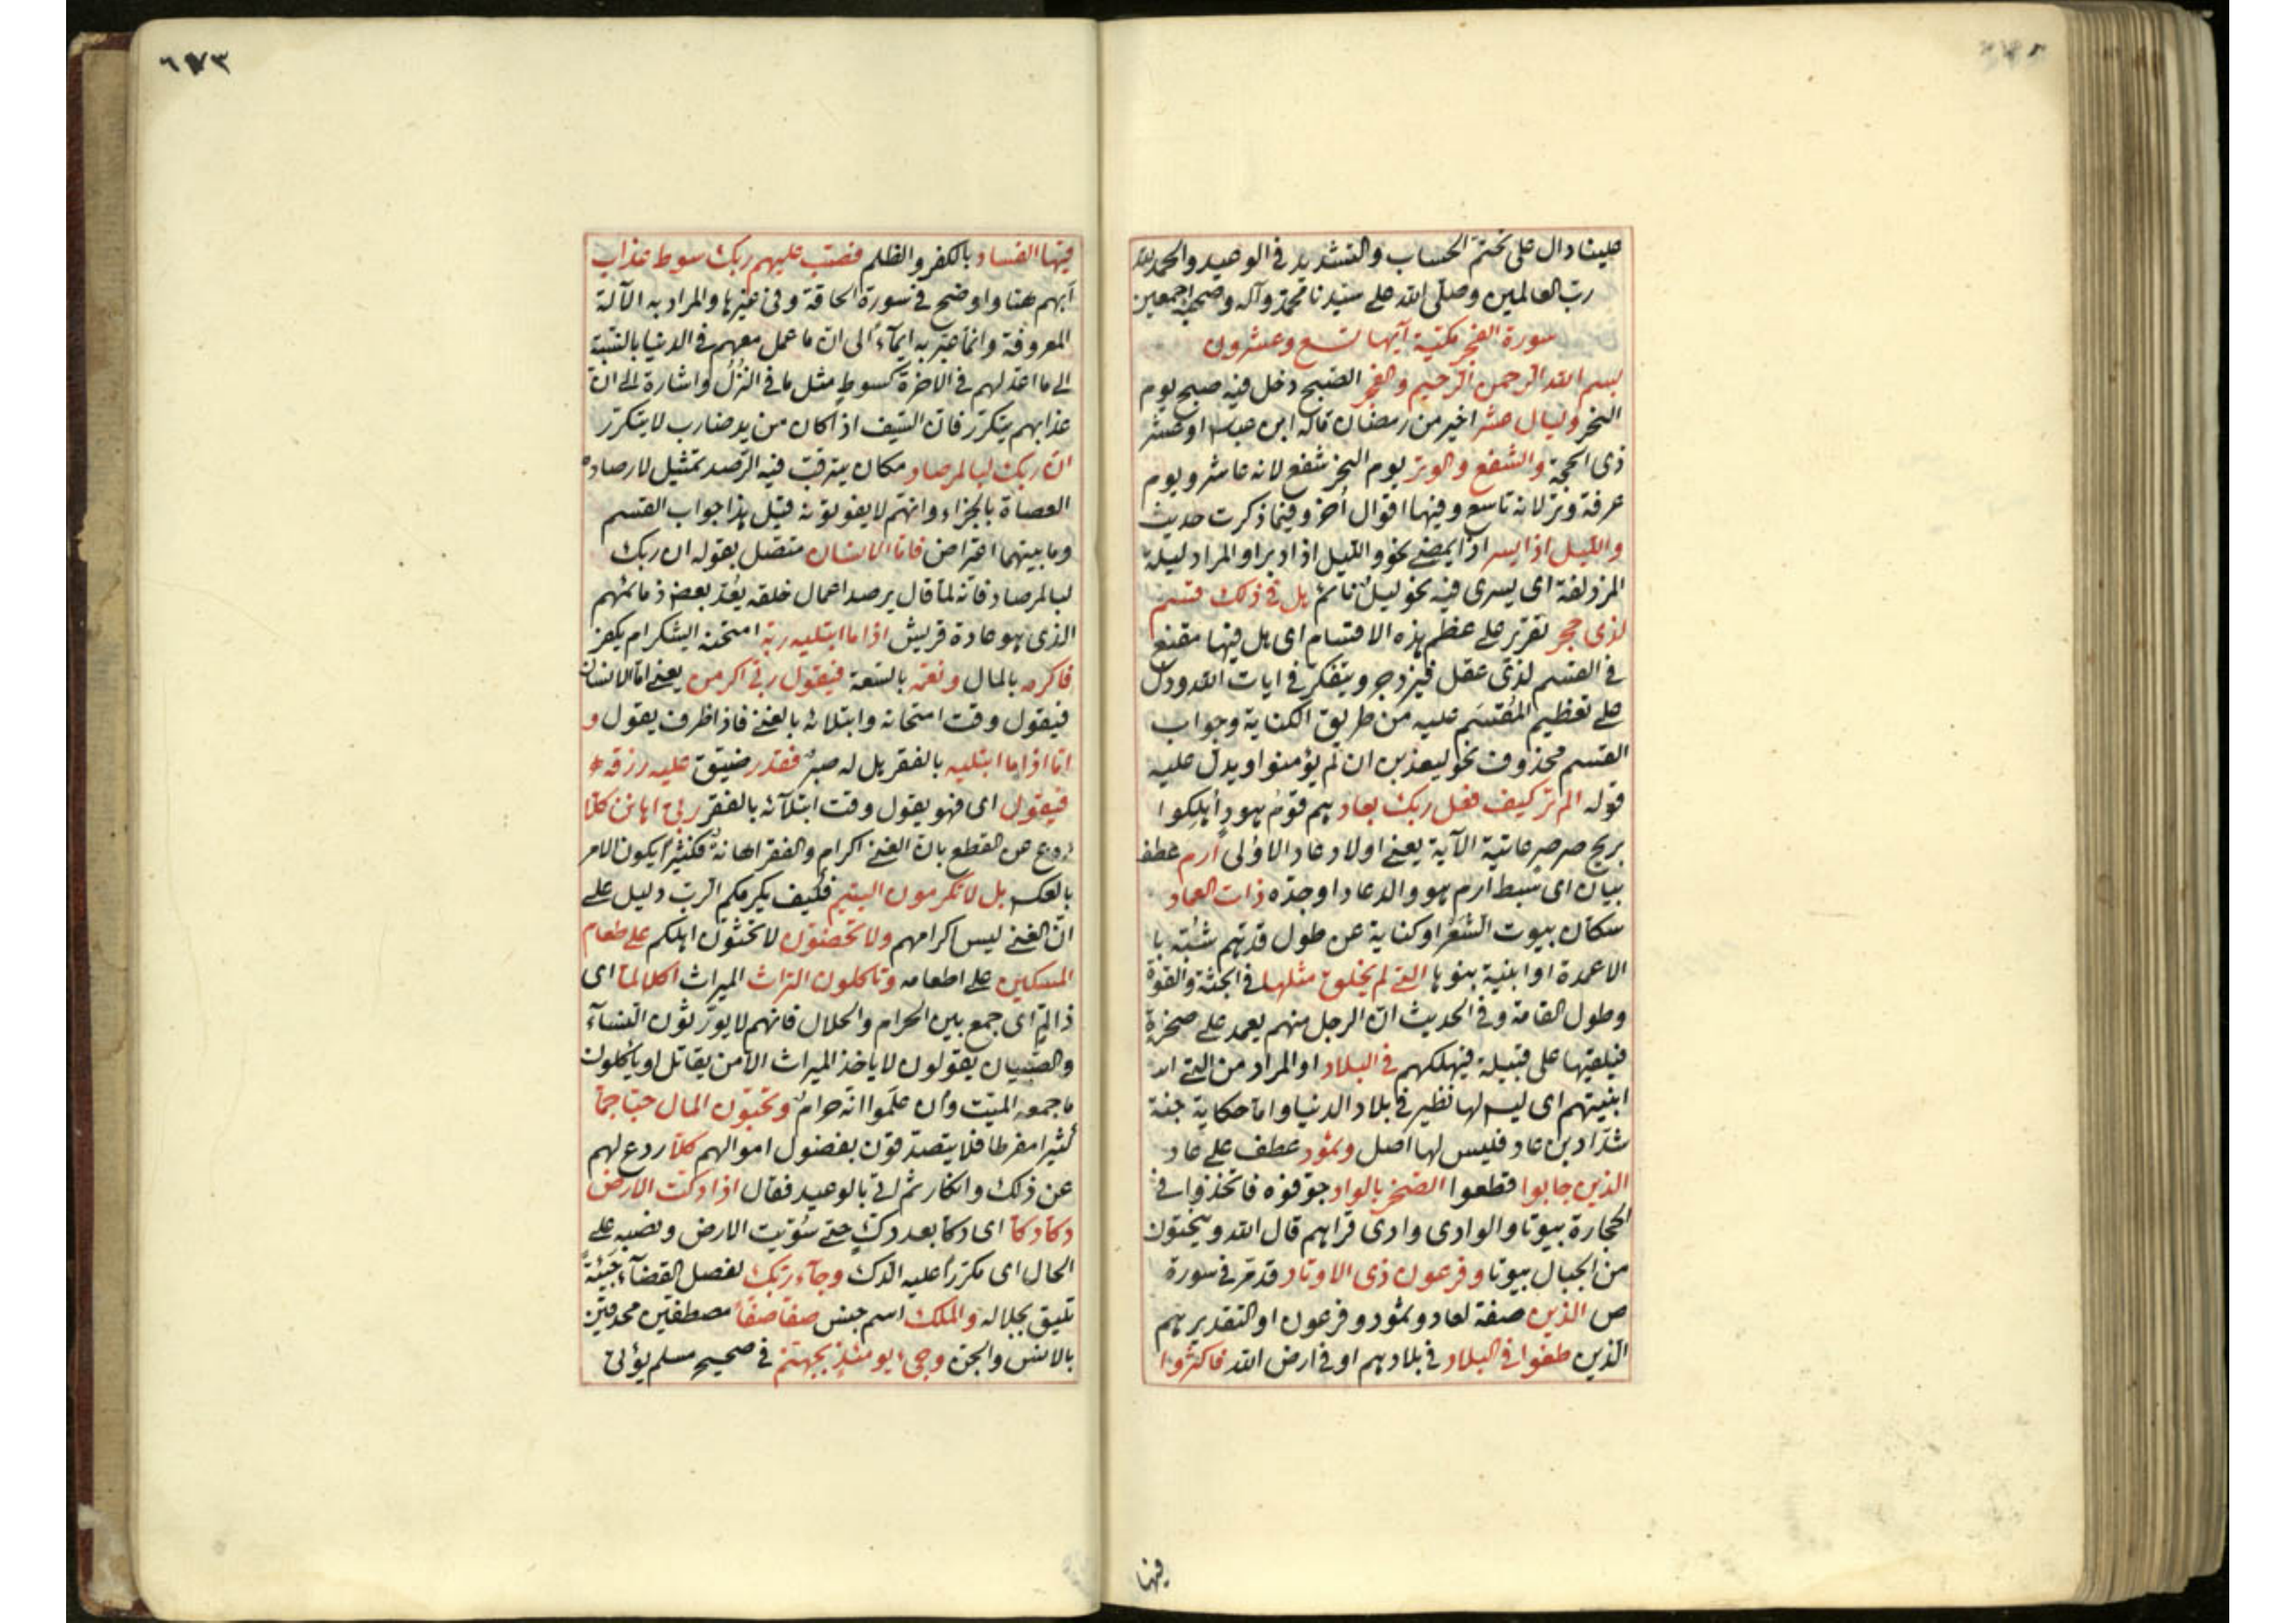 علينا دال على تحتّم الحساب والتشديد في الوعيد والحمد لله
ربّ العالمين وصلّى الله على سيّدنا محمّد وآله وصحبه اجمعين
سورة الفجر مكيّة آيها تسع وعشرون
بسم الله الرحمن الرحيم والفجر الصبح دخل فيه صبح يوم
النحر وليال عشر اخير من رمضان قاله ابن عباس او عشر
ذى الحجة والشفع والوتر يوم النحر شفع لانه عاشر ويوم
عرفة وتر لانه تاسع وفيها اقوال اخر وفيما ذكرت حديث
والليل اذا يسر اذا يمضي نحو والليل اذ ادبر او المراد ليلة
المزدلفة اى يسرى فيه نحو ليل نائم هل في ذلك قسم
لذى حجر تقرير على عظم هذه الاقسام اى هل فيها مقنع
في القسم لذى عقل فيزدجر ويتفكر في ايات الله ودل
على تعظيم المُقسَم عليه من طريق الكناية وجواب
القسم محذوف نحو ليعذبن ان لم يؤمنوا ويدل عليه
قوله الم تر كيف فعل ربك بعاد هم قوم هود أُهلكوا
بريح صرصر عاتية الآية يعني اولاد عاد الاولى ارم عطف
بيان اى سبط ارم هو والد عاد او جدّه ذات العماد
سكان بيوت الشَعَر او كناية عن طول قدّهم شبّه با
الاعمدة او ابنية بنوها التي لم يخلق مثلها في الجثة والقوة
وطول القامة وفي الحديث انّ الرجل منهم يعمد على صخرة
فيلقيها على قبيلة فيهلكهم في البلاد او المراد من التي
ابنيتهم اى ليس لها نظير في بلاد الدنيا واما حكاية جنة
شدّاد بن عاد فليس لها اصل وثمود عطف على عاد
الذين جابوا قطعوا الصخر بالواد جوّفوه فاتخذوا في
الحجارة بيوتا والوادى وادى قراهم قال الله وينحتون
من الجبال بيوتا وفرعون ذى الاوتاد قد مرّ في سورة
ص الذين صفة لعاد وثمود وفرعون او التقدير هم
الذين طغوا في البلاد في بلادهم او في ارض الله فاكثروا
فيها
٦٧٣
فيها الفساد بالكفر والظلم فصب عليهم ربك سوط عذاب
أبهم هنا واوضح في سورة الحاقة وفي غيرها والمراد به الآلة
المعروفة وانما عبّر به ايمآءً الى ان ما عمل معهم في الدنيا بالنسبة
الى ما اعدّ لهم في الآخرة كسوط مثل ما في النُزُل واشارة الى ان
عذابهم يتكرر فان السيف اذا كان من يد ضارب لا يتكرر
انّ ربك لبالمرصاد مكان يترقب فيه الرّصد تمثيل لارصاده
العصاة بالجزاء وانهم لا يفوتونه قيل هذا جواب القسم
وما بينهما اعتراض فامّا الانسان متصل بقوله ان ربك
لبالمرصاد فانه لمّا قال يرصد اعمال خلقه يعُدّ بعض ذمائمهم
الذى هو عادة قريش اذا ما ابتليه ربه امتحنه ايشكر ام يكفر
فاكرمه بالمال ونعّمه بالسعة فيقول ربي اكرمن يعني امّا الانسان
فيقول وقت امتحانه وابتلائه بالغنى فاذا ظرف يقول و
امّا اذا ما ابتليه بالفقر هل له صبر فقدر ضيّق عليه رزقه
فيقول اى فهو يقول وقت ابتلآئه بالفقر ربي اهانن كلّا
ردع عن القطع بان الغنى اكرام والفقر اهانة فكثيراً يكون الامر
بالعكس بل لا تكرمون اليتيم فكيف يكرمكم الرب دليل على
انّ الغنى ليس اكرامهم ولا تحضّون لا تحثّون اهلكم على طعام
المسكين على اطعامه وتاكلون التراث الميراث اكلا لمّا اى
ذا لمٍّ اى جمع بين الحرام والحلال فانهم لا يورّثون النسآء
والصّبيان يقولون لا ياخذ الميراث الا من يقاتل او يأكلون
ما جمعه الميّت وان علموا انه حرام وتحبّون المال حبّا جمّا
كثيرا مفرطا فلا يتصدّقون بفضول اموالهم كلّا ردع لهم
عن ذلك وانكار ثم اتى بالوعيد فقال اذا دكت الارض
دكّا دكّا اى دكا بعد دكٍّ حتى سُوّيت الارض ونصبه على
الحال اى مكرراً عليه الدك وجآء ربّك لفصل القضآء جَيئةً
تليق بجلاله والملك اسم جنس صفّا صفّاً مصطفّين محدقين
بالانس والجن وجىء يومئذٍ بجهنم في صحيح مسلم يؤتى